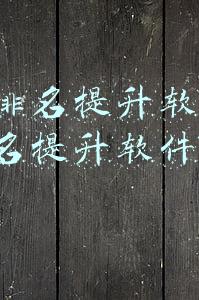 排名提升软
名提升软件